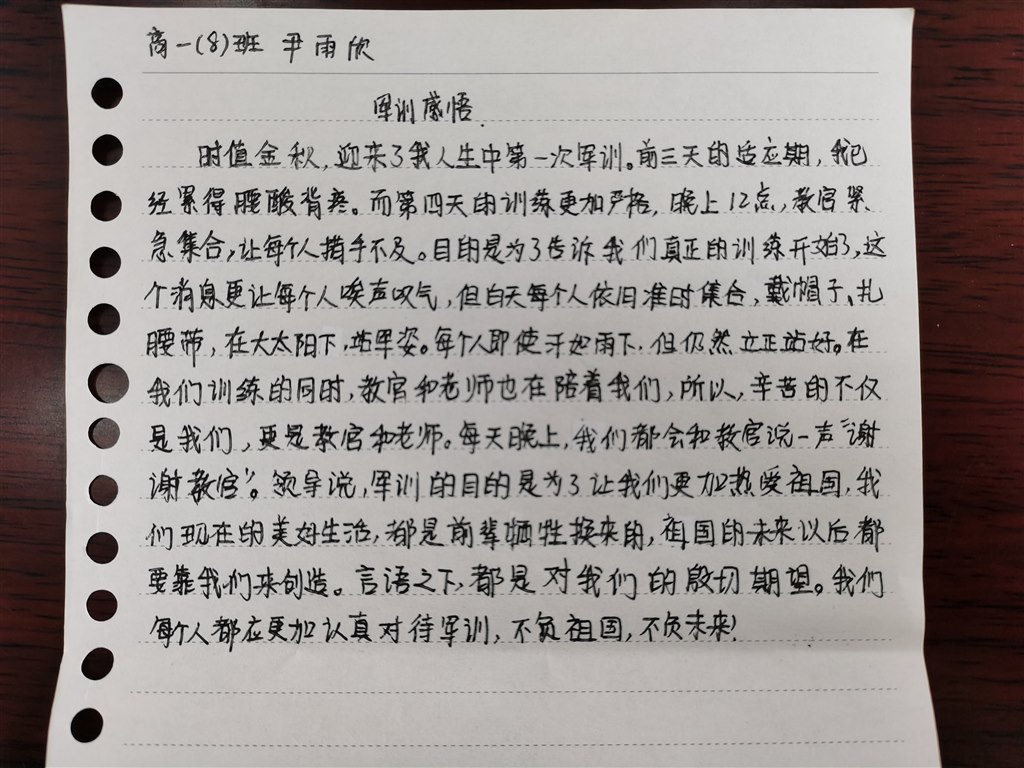 高一(8)班 尹雨欣
军训感悟
时值金秋,迎来了我人生中第一次军训。前三天的适应期,我已
经累得腰酸背疼。而第四天的训练更加严格,晚上12点,教官紧
急集合,让每个人措手不及。目的是为了告诉我们真正的训练开始了,这
个消息更让每个人唉声叹气,但白天每个人依旧准时集合,戴帽子、扎
腰带,在大太阳下,站军姿。每个人即使汗如雨下,但仍然立正站好。在
我们训练的同时,教官和老师也在陪着我们,所以,辛苦的不仅
是我们,更是教官和老师。每天晚上,我们都会和教官说一声“谢
谢教官”。领导说,军训的目的是为了让我们更加热爱祖国,我
们现在的美好生活,都是前辈牺牲换来的,祖国的未来以后都
要靠我们来创造。言语之下,都是对我们的殷切期望。我们
每个人都应更加认真对待军训,不负祖国,不负未来!